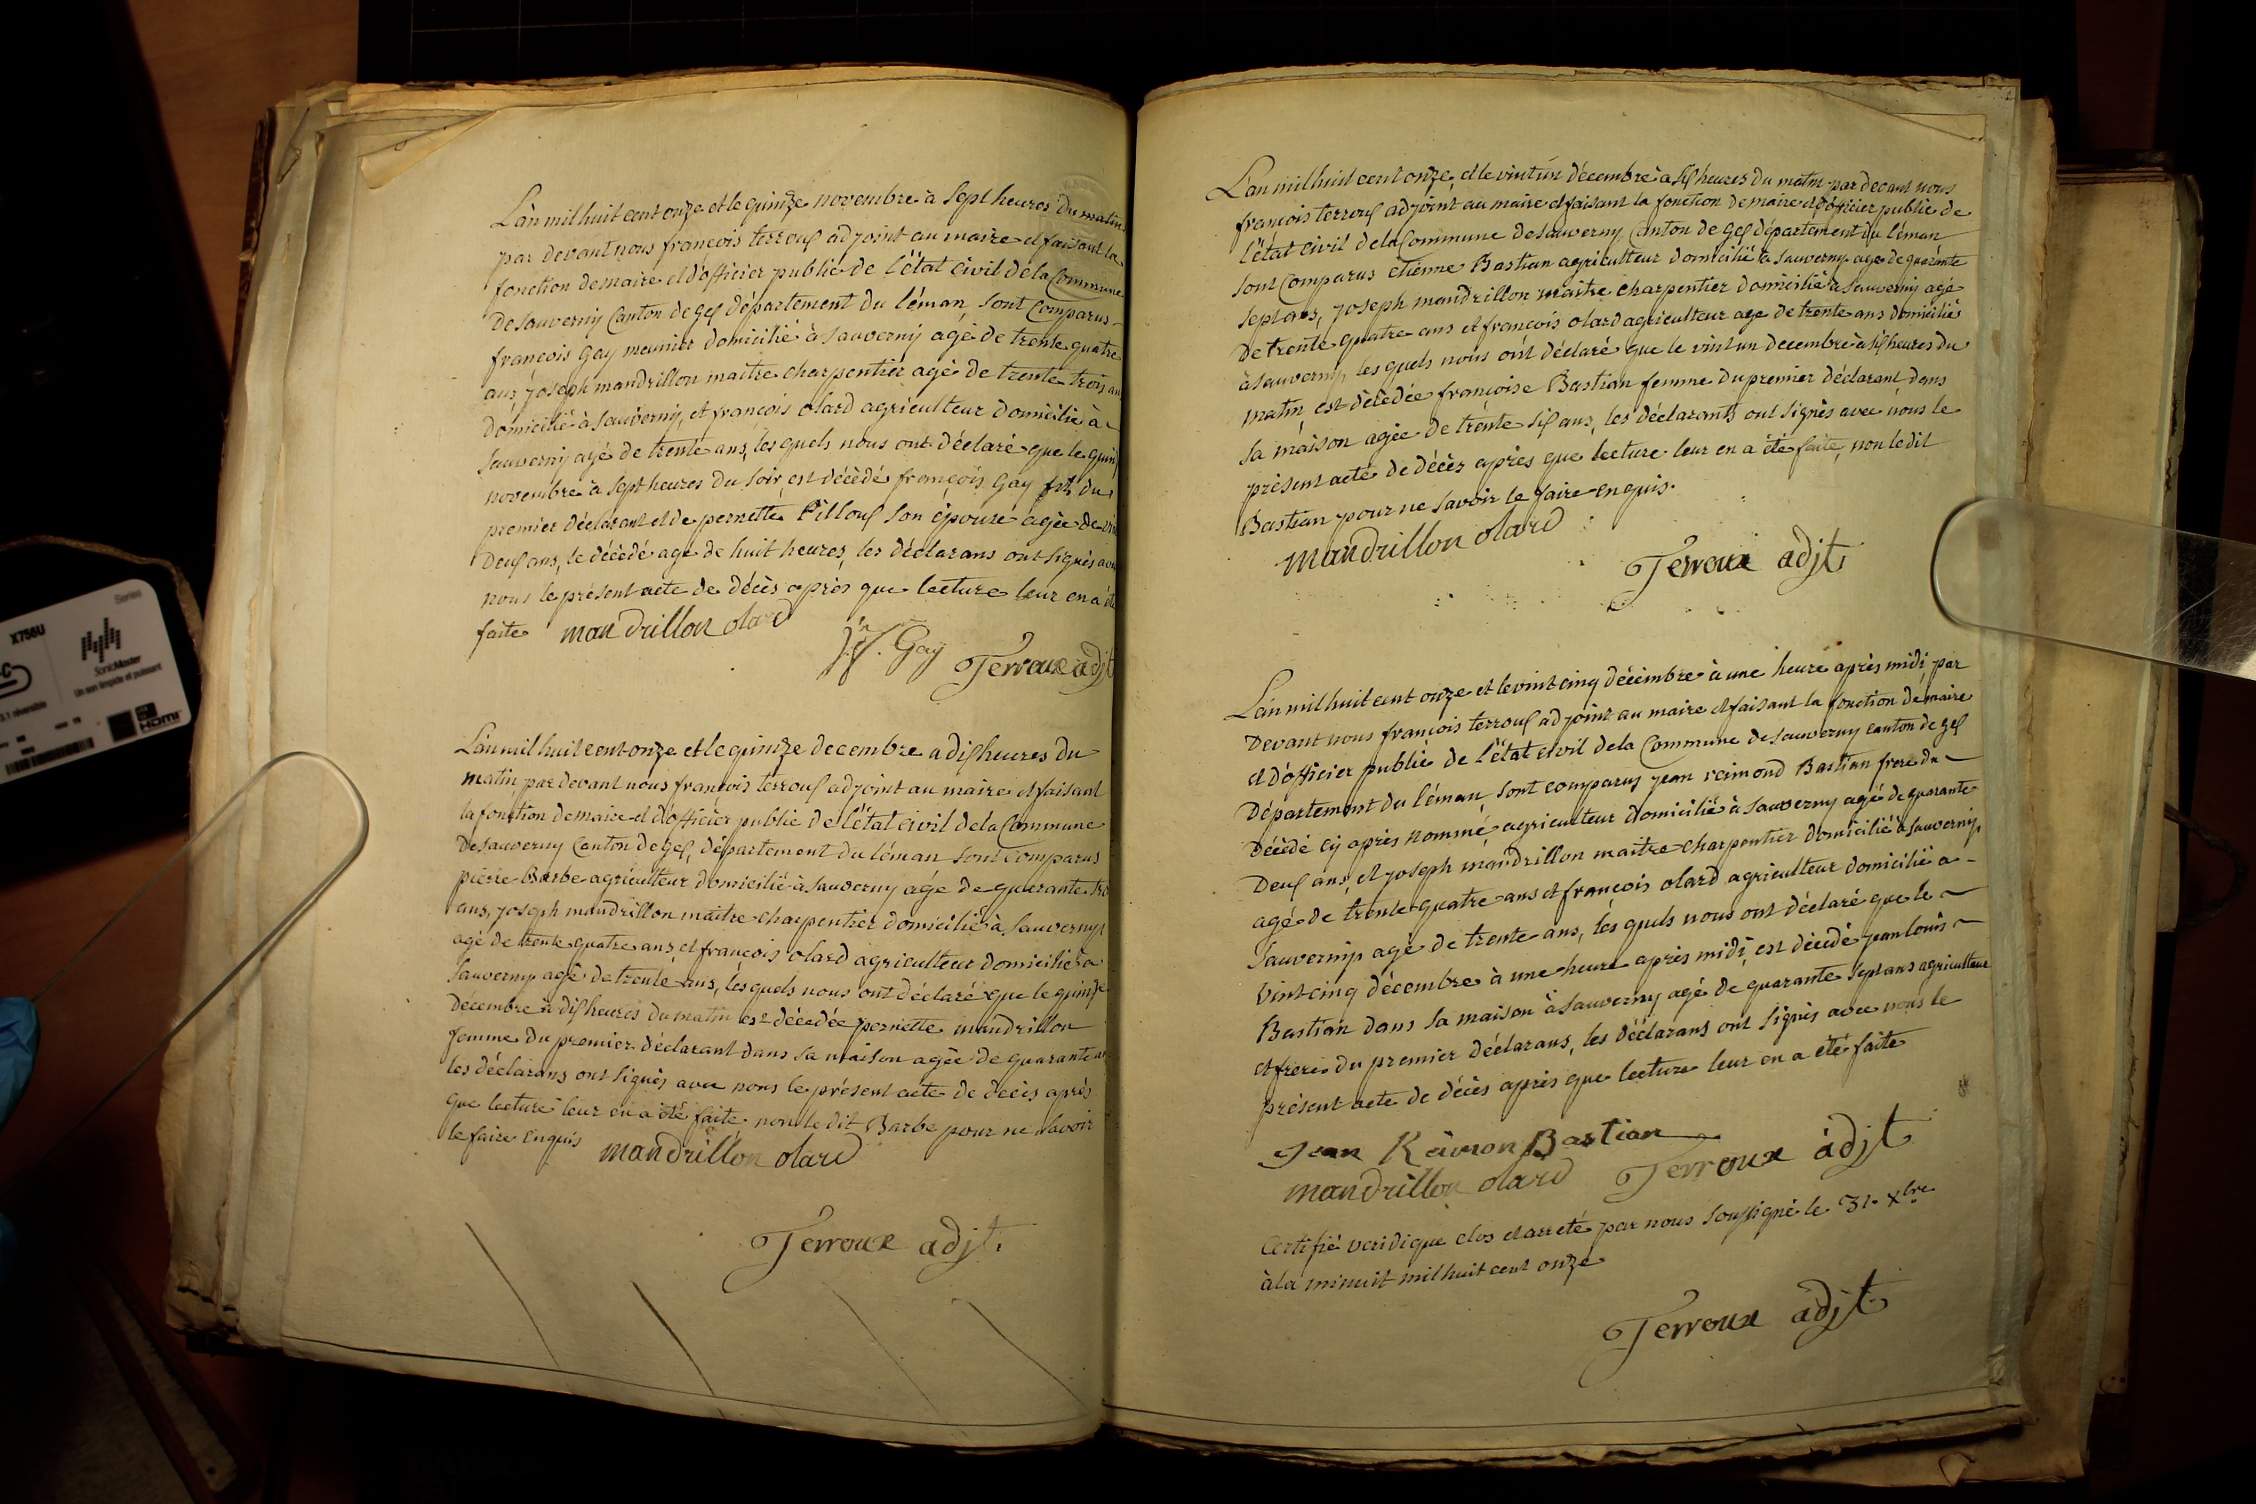 L'an mil huit cent onze et le quinze novembre à sept heures du matin
par devant nous françois terroux adjoint au maire et faisant la
fonction de maire et d'officier public de l'état civil de la Commune
de sauverny Canton de gex département du léman, sont Comparus
françois Gay meunier domicilié à sauverny agé de trente quatre
ans, joseph mandrillon maitre charpentier agé de trente trois an
domicilié à sauverny, et françois olard agriculteur domicilié à
sauverny agé de trente ans, les quels nous ont déclaré que le quin
novembre à sept heures du soir est décédé françois Gay fils du
premier déclarant et de pernette Pilloux son épouse agée de
deux ans, le décédé agé de huit heures, les déclarans ont signés avec
nous le présent acte de décès après que lecture leur en a été
faite mandrillon olard
Gay Terroux adjt
L'an mil huit cent onze et le quinze decembre a dix heures du
matin, par devant nous françois terroux adjoint au maire et faisant
la fonction de maire et d'officier public de l'état civil de la Commune
de sauverny Canton de Gex, département du léman sont Comparus
pierre Barbe agriculteur domicilié à sauverny agé de quarante tro
ans, joseph mandrillon maitre charpentier domicilié à Sauverny
agé de trente quatre ans, et françois olard agriculteur domicilié a
Sauverny agé de trente ans, les quels nous ont déclaré que le quinze
décembre à dix heures du matin est décédée pernette mandrillon
femme du premier déclarant dans sa maison agée de quarante
les déclarans ont signés avec nous le présent acte de décès après
que lecture leur en a été faite, non le dit Barbe pour ne savoir
le faire enquis mandrillon olard
Terroux adjt.
L'an mil huit cent onze, et le vint un décembre à six heures du matin par devant nous
françois terroux adjoint au maire et faisant la fonction de maire et d'officier public de
l'état civil de la Commune de sauverny Canton de gex département du léman
sont Comparus etienne Bastian agriculteur domicilié à sauverny age de quarante
sept ans, joseph mandrillon maitre charpentier domicilié a sauverny agé
de trente quatre ans et françois olard agriculteur agé de trente ans domicilié
à sauverny, les quels nous ont déclaré que le vint un decembre à six heures du
matin est décédée françoise Bastian femme du premier déclarant dans
sa maison agée de trente six ans, les déclarants ont signés avec nous le
présent acte de décès après que lecture leur en a été faite, non le dit
Bastian pour ne savoir le faire enquis.
mandrillon olard
Terroux adjt
L'an mil huit cent onze et le vint cinq décembre à une heure après midi, par
devant nous françois terroux adjoint au maire et faisant la fonction de maire
et d'officier public de l'état civil de la Commune de sauverny canton de gex
département du léman, sont comparus jean reimond Bastian frere du
décédé cy après nommé, agriculteur domicilié à sauverny agé de quarante
deux ans, et joseph mandrillon maitre charpentier domicilié à sauverny,
agé de trente quatre ans et françois olard agriculteur domicilié a
Sauverny agé de trente ans, les quels nous ont déclaré que le
vint cinq décembre à une heure après midi, est décédé jean louis
Bastian dans sa maison à sauverny agé de quarante sept ans agriculteur
et frere du premier déclarans, les déclarans ont signés avec nous le
présent acte de décès après que lecture leur en a été faite
Jean Raimon Bastian
mandrillon olard Terroux adjt
Certifié veridique clos et arreté par nous soussigné le 31. Xbre
à la minuit mil huit cent onze
Terroux adjt
Series
X756U
SonicMaster
Un son limpide et puissant
3.1 réversible
HDMI